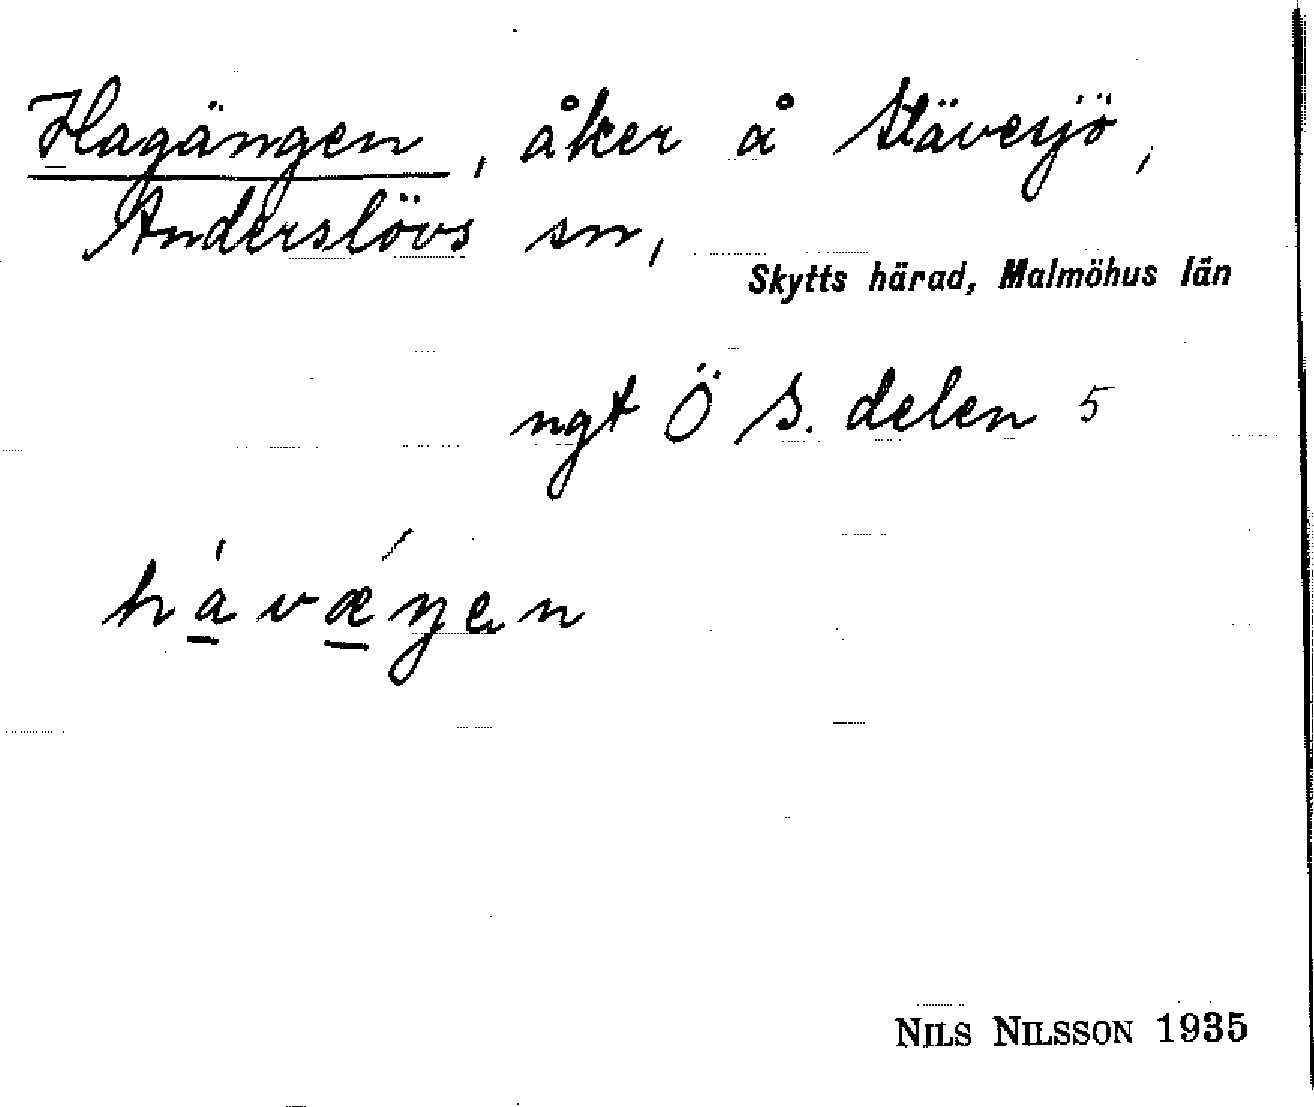 Hagängen, åker å Stäverjö,
Anderslövs sn,
Skytts härad, Malmöhus län
ngt Ö S. delen 5
hávǽŋen
NILS NILSSON 1935